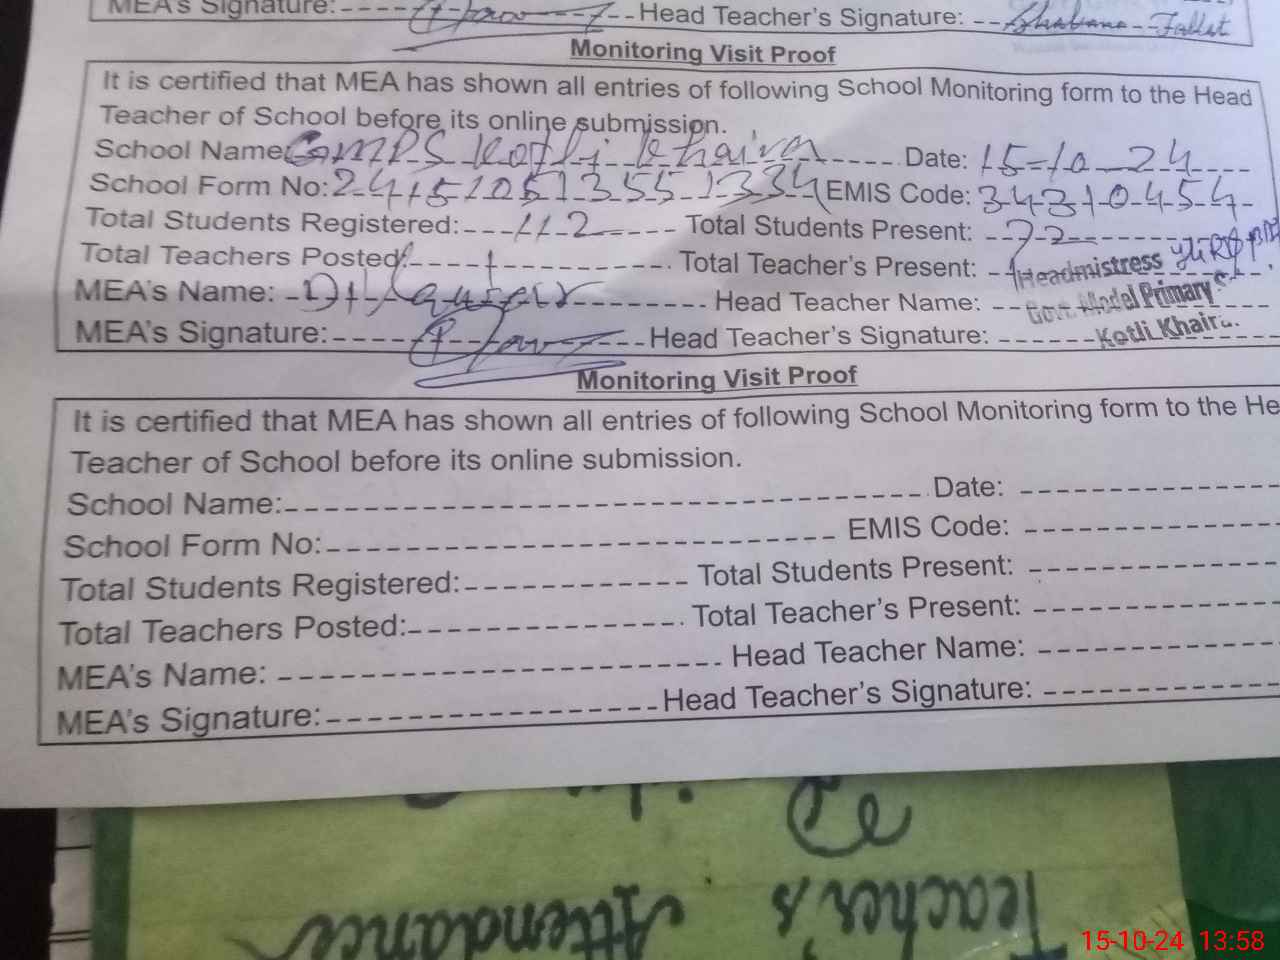 MEA's Signature: Head Teacher's Signature: Shabana
Monitoring Visit Proof
It is certified that MEA has shown all entries of following School Monitoring form to the Head
Teacher of School before its online submission.
School Name: GMPS Kotli Khaira Date: 15-10-24
School Form No: EMIS Code: 34310454
Total Students Registered: 112 Total Students Present: 72
Total Teachers Posted: Total Teacher's Present:
MEA's Name: Head Teacher Name: Headmistress
MEA's Signature: Head Teacher's Signature: Govt. Model Primary
Kotli Khaira.
Monitoring Visit Proof
It is certified that MEA has shown all entries of following School Monitoring form to the He
Teacher of School before its online submission.
School Name: Date:
School Form No: EMIS Code:
Total Students Registered: Total Students Present:
Total Teachers Posted: Total Teacher's Present:
MEA's Name: Head Teacher Name:
MEA's Signature: Head Teacher's Signature:
Teacher's
Attendance
15-10-24 13:58